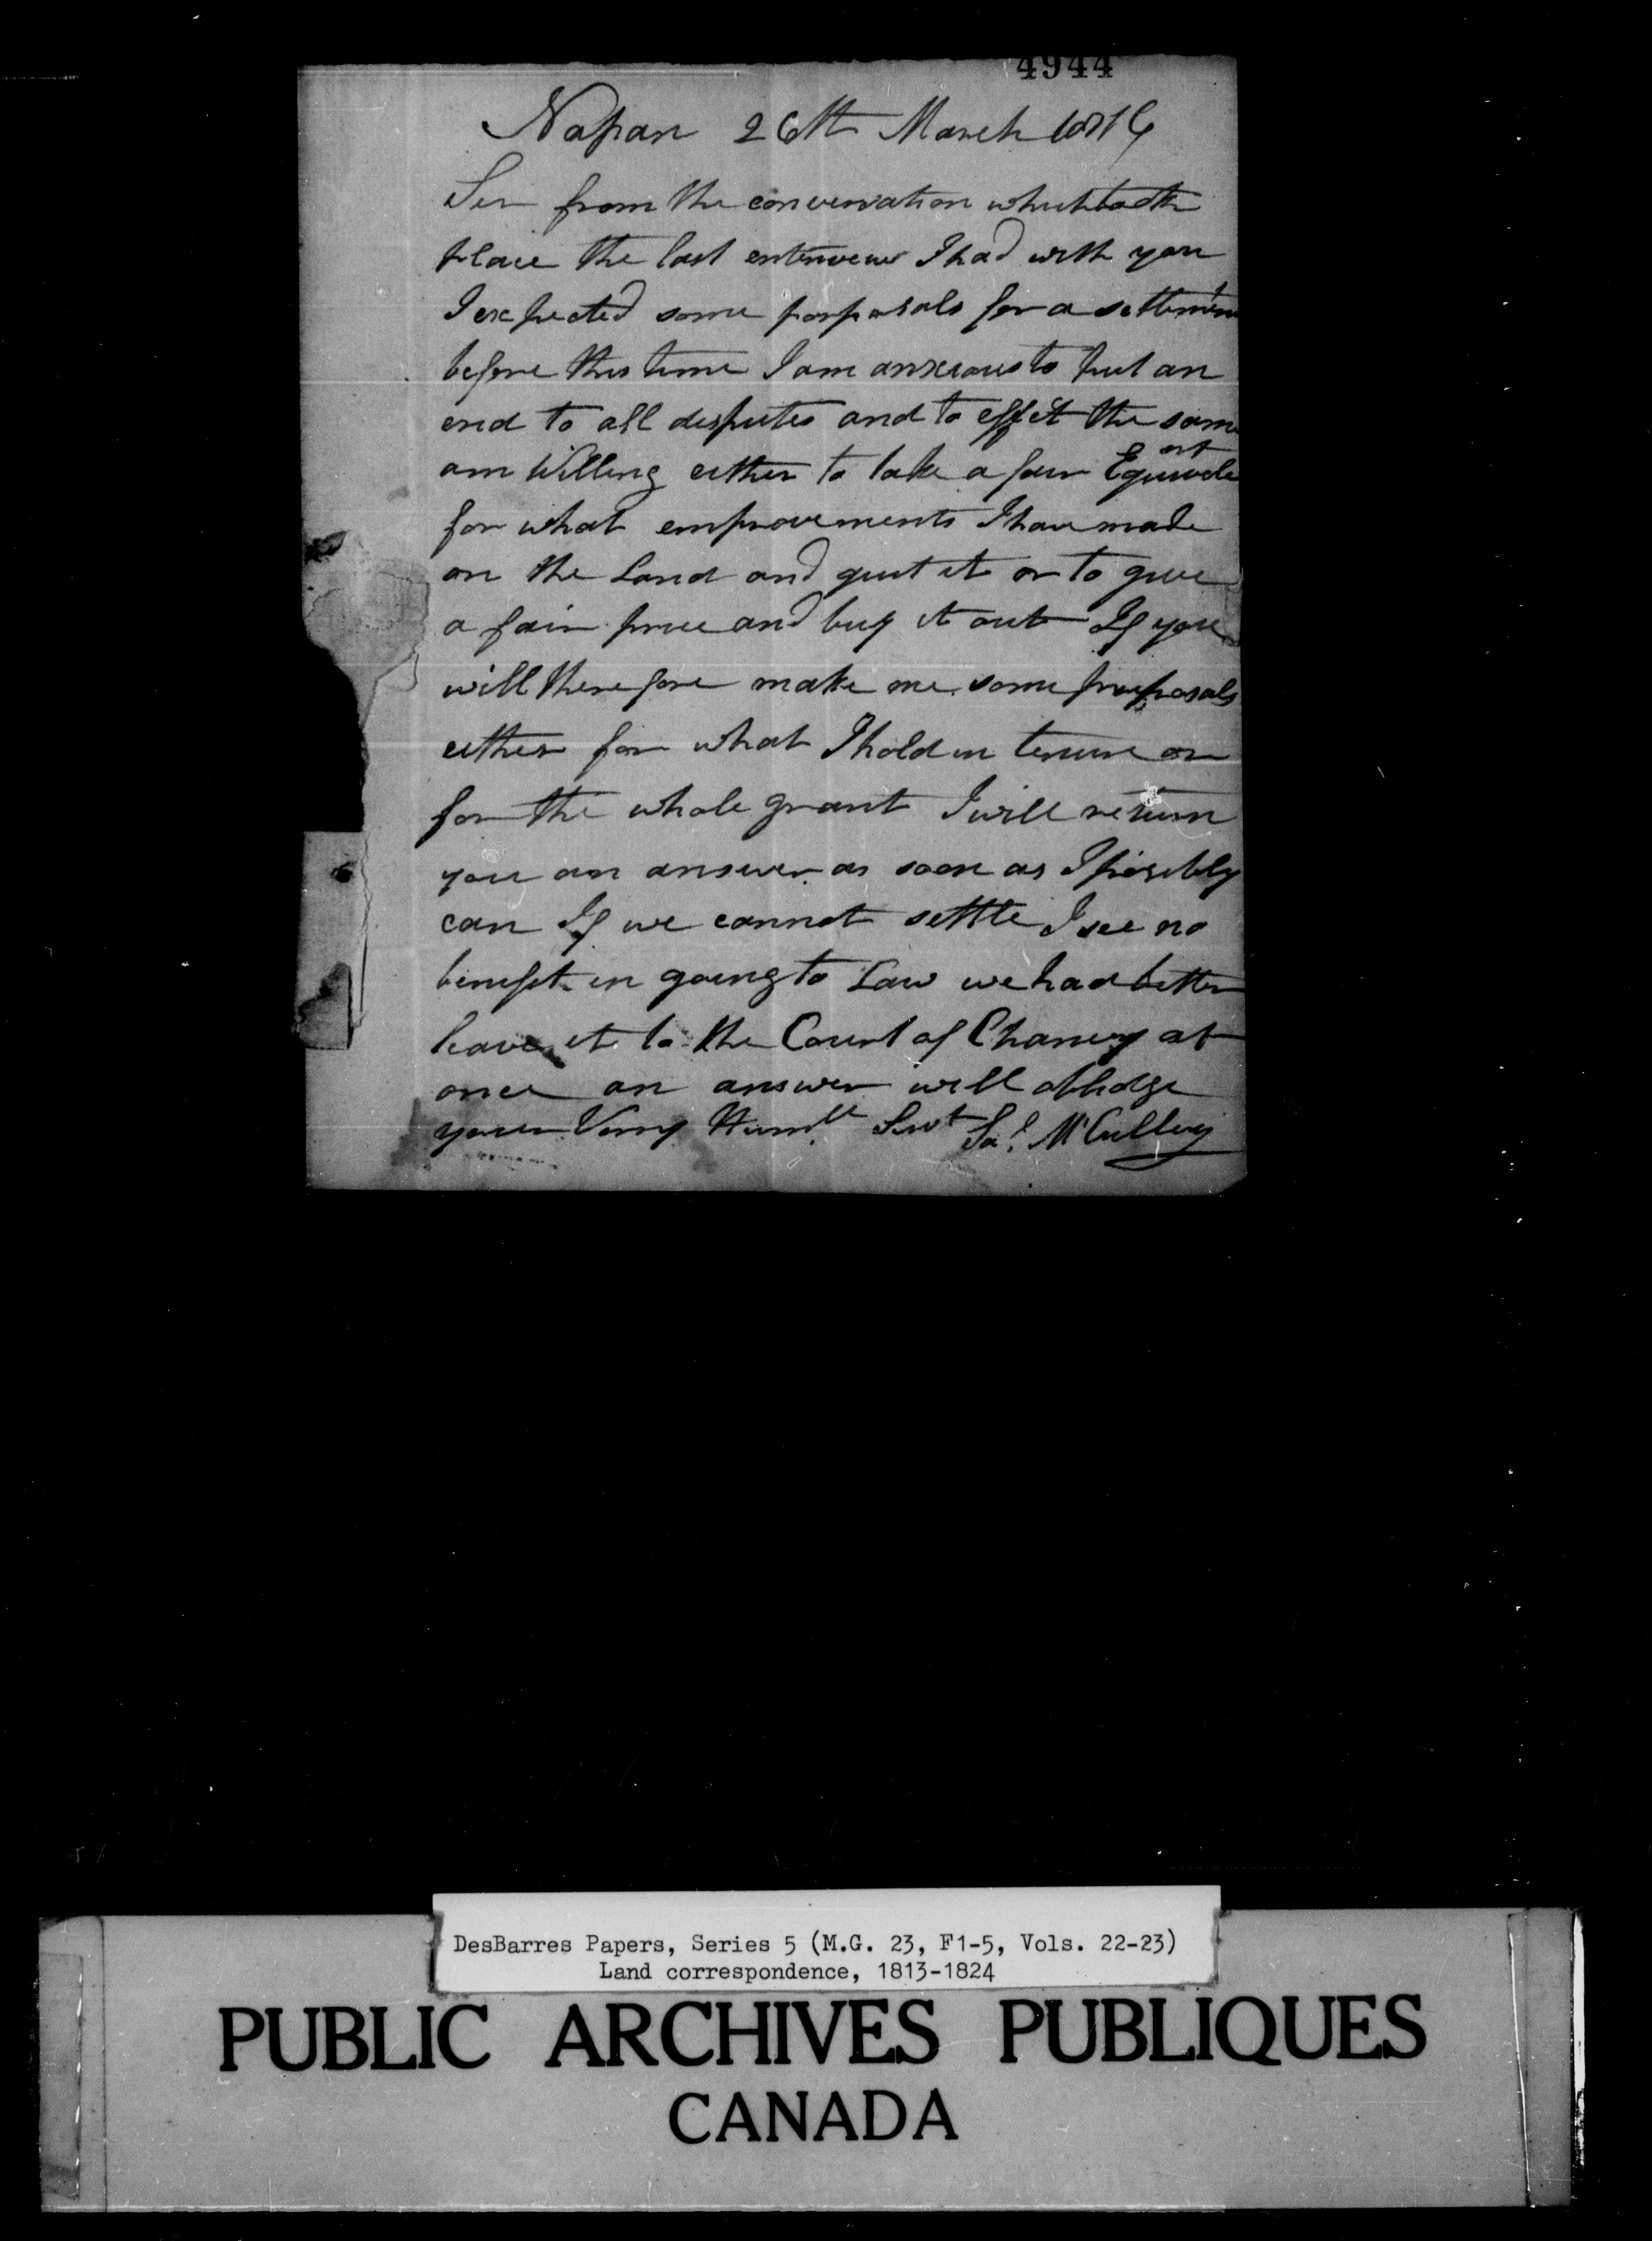 4944
Napan 26th March 1816
Sir from the conversation which tooke
place the last enterveiw I had with you
I expected some porposals for a settlement
before this time I am anxious to put an
end to all disputes and to effect the same
am Willing either to take a fair Equivelent
for what emprovements I have made
on the Land and quit it or to give
a fair price and buy it out If you
will therefore make me some proposals
either for what I hold in tenure or
for the whole grant I will return
you an answer as soon as I posibly
can If we cannot settle I see no
benifit in going to Law we had better
leave it to the Court of Chancery at
once an answer will oblidge
your Very Humle Servt Sal McCulley
DesBarres Papers, Series 5 (M.G. 23, F1-5, Vols. 22-23)
Land correspondence, 1813-1824
PUBLIC ARCHIVES PUBLIQUES
CANADA